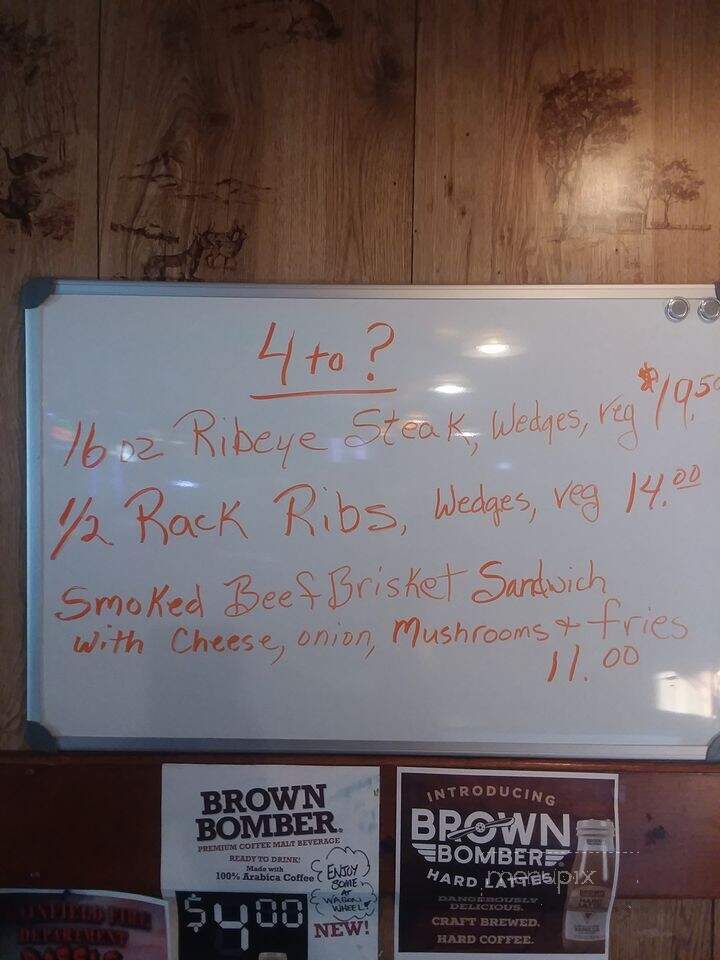 4 to ?
16 oz Ribeye Steak, Wedges, veg $19.50
1/2 Rack Ribs, Wedges, veg 14.00
Smoked Beef Brisket Sandwich
with Cheese, onion, Mushrooms & fries
11.00
BROWN
BOMBER
PREMIUM COFFEE MALT BEVERAGE
READY TO DRINK!
Made with
100% Arabica Coffee
ENJOY
SOME
AT
WAGON
WHEEL!
$4.00
NEW!
INTRODUCING
BROWN
BOMBER
HARD LATTES
DANGEROUSLY
DELICIOUS.
CRAFT BREWED.
HARD COFFEE.
menupix
DEPARTMENT